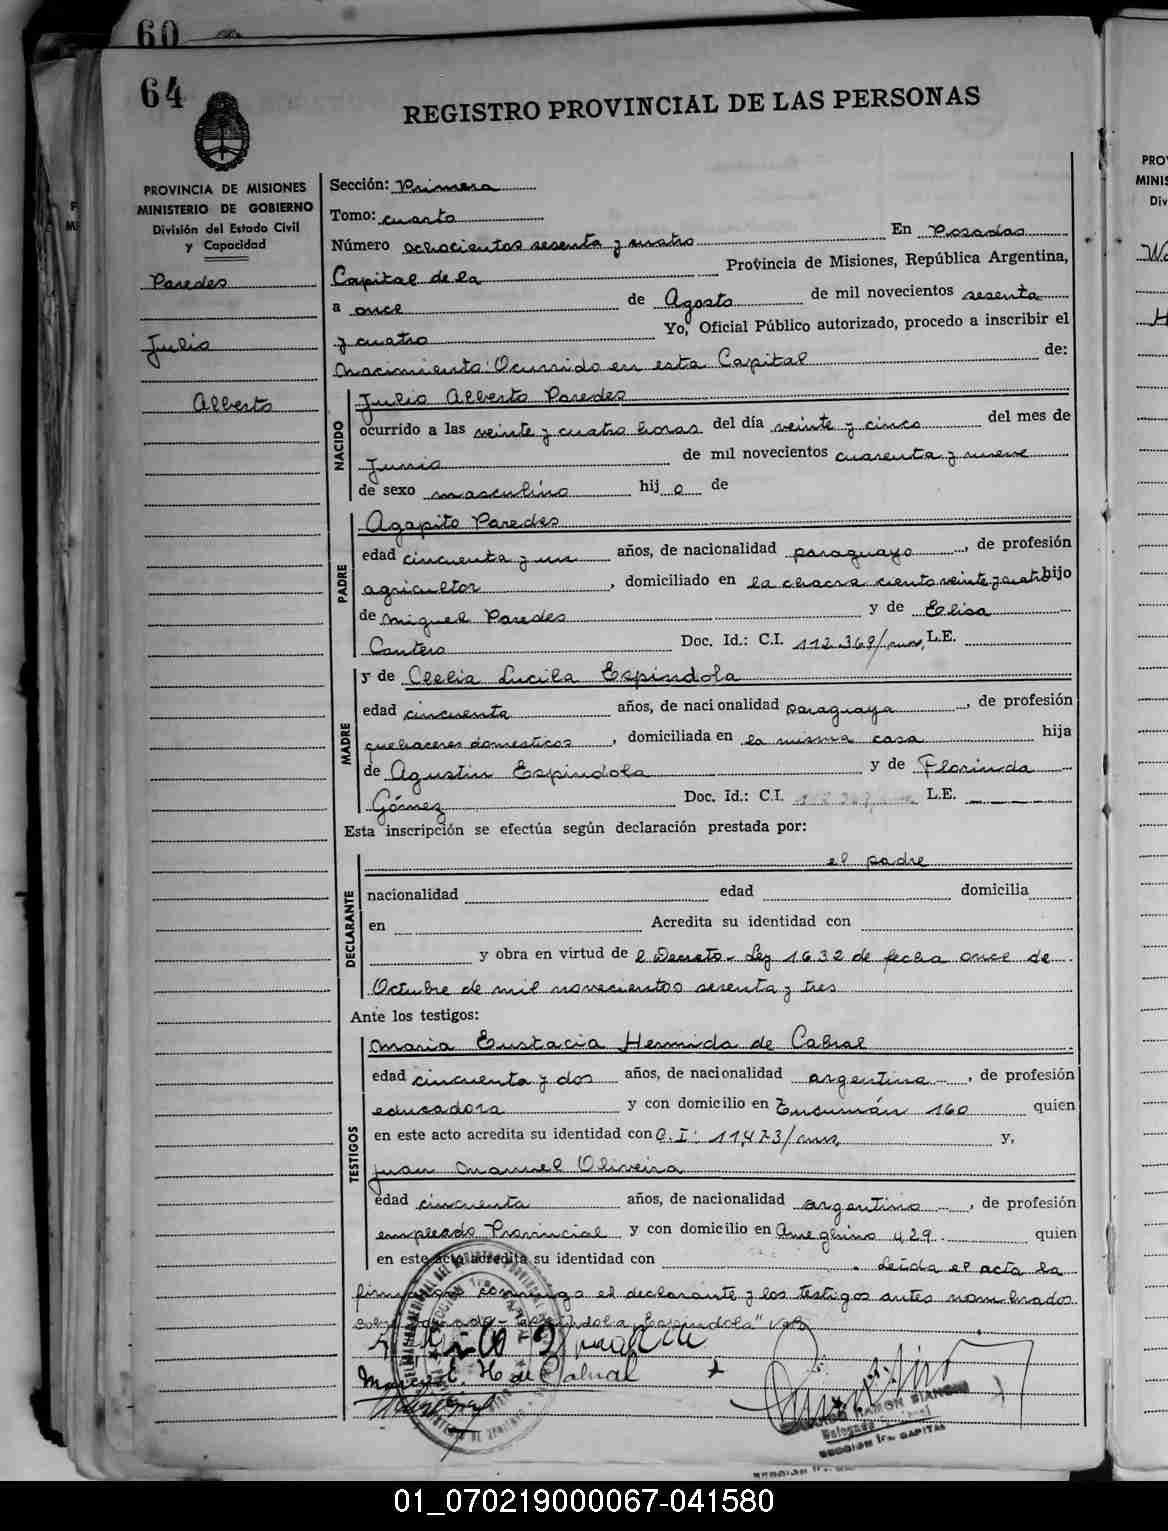 60
64
REGISTRO PROVINCIAL DE LAS PERSONAS
PROVINCIA DE MISIONES
MINISTERIO DE GOBIERNO
División del Estado Civil
y Capacidad
Paredes
Julio
Alberto
Sección: Primera
Tomo: cuarto
Número ochocientos sesenta y cuatro En Posadas
Capital de la Provincia de Misiones, República Argentina,
a once de Agosto de mil novecientos sesenta
y cuatro Yo, Oficial Público autorizado, procedo a inscribir el
nacimiento: Ocurrido en esta Capital de:
NACIDO
Julio Alberto Paredes
ocurrido a las veinte y cuatro horas del día veinte y cinco del mes de
Junio de mil novecientos cuarenta y nueve
de sexo masculino hij o de
PADRE
Agapito Paredes
edad cincuenta y un años, de nacionalidad paraguayo, de profesión
agricultor, domiciliado en la chacra ciento veinte y cuatro hijo
de Miguel Paredes y de Elisa
Cantero Doc. Id.: C.I. 112.369/mnes, L.E.
MADRE
y de Clelia Lucila Espindola
edad cincuenta años, de nacionalidad paraguaya, de profesión
quehaceres domesticos, domiciliada en la misma casa hija
de Agustin Espindola y de Florinda
Gómez Doc. Id.: C.I. L.E.
Esta inscripción se efectúa según declaración prestada por:
DECLARANTE
el padre
nacionalidad edad domicilia
en Acredita su identidad con
y obra en virtud de l Decreto-Ley 1632 de fecha once de
Octubre de mil novecientos sesenta y tres
Ante los testigos:
TESTIGOS
Maria Eustacia Hermida de Cabral
edad cincuenta y dos años, de nacionalidad argentina, de profesión
educadora y con domicilio en Tucumán 160 quien
en este acto acredita su identidad con C.I: 11,473/mnes, y,
Juan Manuel Oliveira
edad cincuenta años, de nacionalidad argentino, de profesión
empleado Provincial y con domicilio en Ameghino 429 quien
en este acto acredita su identidad con . Leída el acta la
firman conmigo el declarante y los testigos antes nombrados
Espindola" vale
H de Cabral
RAMON BIANCHI
SECCION 1ra CAPITAL
PRO
MINIS
Div
01_070219000067-041580